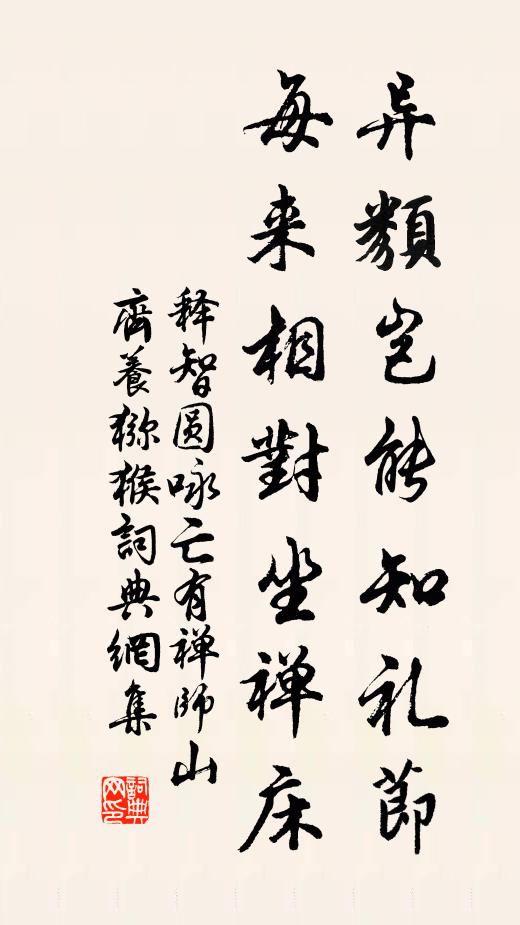 异類岂能知礼節
每来相對坐禅床
释智圓咏亡有禅师山
齋養猕猴詞典網集
詞典网印